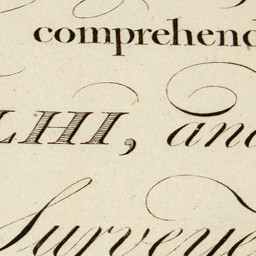 comprehend
LHI, and
Surveye